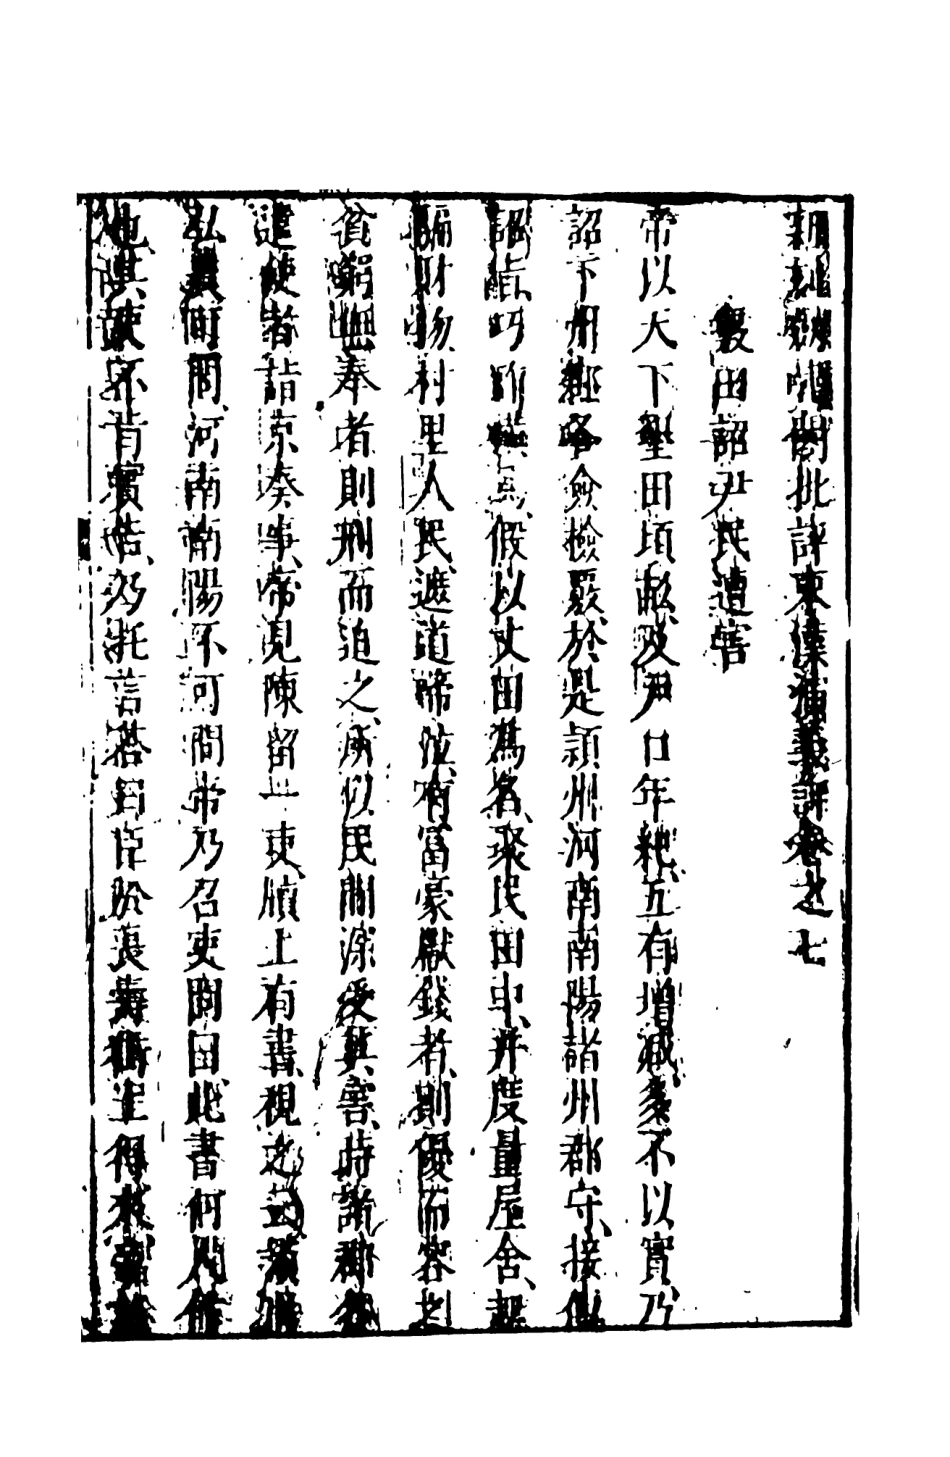 新刻劍嘯閣批評東漢演義評卷之七
覈田詔尹民遭害
帝以天下墾田頃畝及尹口年紀五有增减多不以實乃
詔下州郡各僉檢覈於是頴州河南南陽諸州郡守接
詔旨巧詐 假以丈田爲名聚民田中并度量屋舍
騙財物村里人民遮道啼泣有富豪獻錢者則優而容
貧窮無奉者則刑而迫之所以民間深受其害時諸郡各
遣使者詣京奏事帝見陳留一吏牘上有書視之云頴
私襄可問河南南陽不可問帝乃召吏問曰此書何人
也其吏不肯實告乃託言答曰臣於長壽街上得來帝